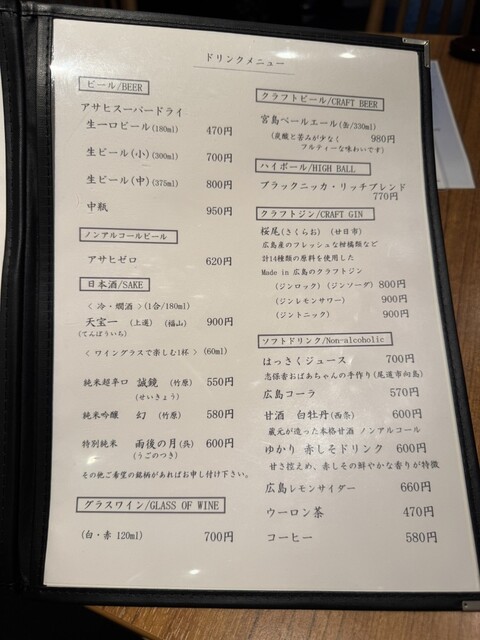 ドリンクメニュー
ビール/BEER
アサヒスーパードライ
生一口ビール(180ml) 470円
生ビール(小)(300ml) 700円
生ビール(中)(375ml) 800円
中瓶 950円
ノンアルコールビール
アサヒゼロ 620円
日本酒/SAKE
〈 冷・燗酒 〉(1合/180ml)
天宝一 (上選) (福山) 900円
(てんぽういち)
〈 ワイングラスで楽しむ1杯 〉(60ml)
純米超辛口 誠鏡 (竹原) 550円
(せいきょう)
純米吟醸 幻 (竹原) 580円
特別純米 雨後の月(呉) 600円
(うごのつき)
その他ご希望の銘柄があればお申し付け下さい。
グラスワイン/GLASS OF WINE
(白・赤 120ml) 700円
クラフトビール/CRAFT BEER
宮島ペールエール(缶/330ml)
980円
(炭酸と苦みが少なく
フルティーな味わいです)
ハイボール/HIGH BALL
ブラックニッカ・リッチブレンド
770円
クラフトジン/CRAFT GIN
桜尾(さくらお) (廿日市)
広島産のフレッシュな柑橘類など
計14種類の原料を使用した
Made in 広島のクラフトジン
(ジンロック) (ジンソーダ) 800円
(ジンレモンサワー) 900円
(ジントニック) 900円
ソフトドリンク/Non-alcoholic
はっさくジュース 700円
志保香おばあちゃんの手作り(尾道市向島)
広島コーラ 570円
甘酒 白牡丹(西条) 600円
蔵元が造った本格甘酒 ノンアルコール
ゆかり 赤しそドリンク 600円
甘さ控えめ、赤しその鮮やかな香りが特徴
広島レモンサイダー 660円
ウーロン茶 470円
コーヒー 580円